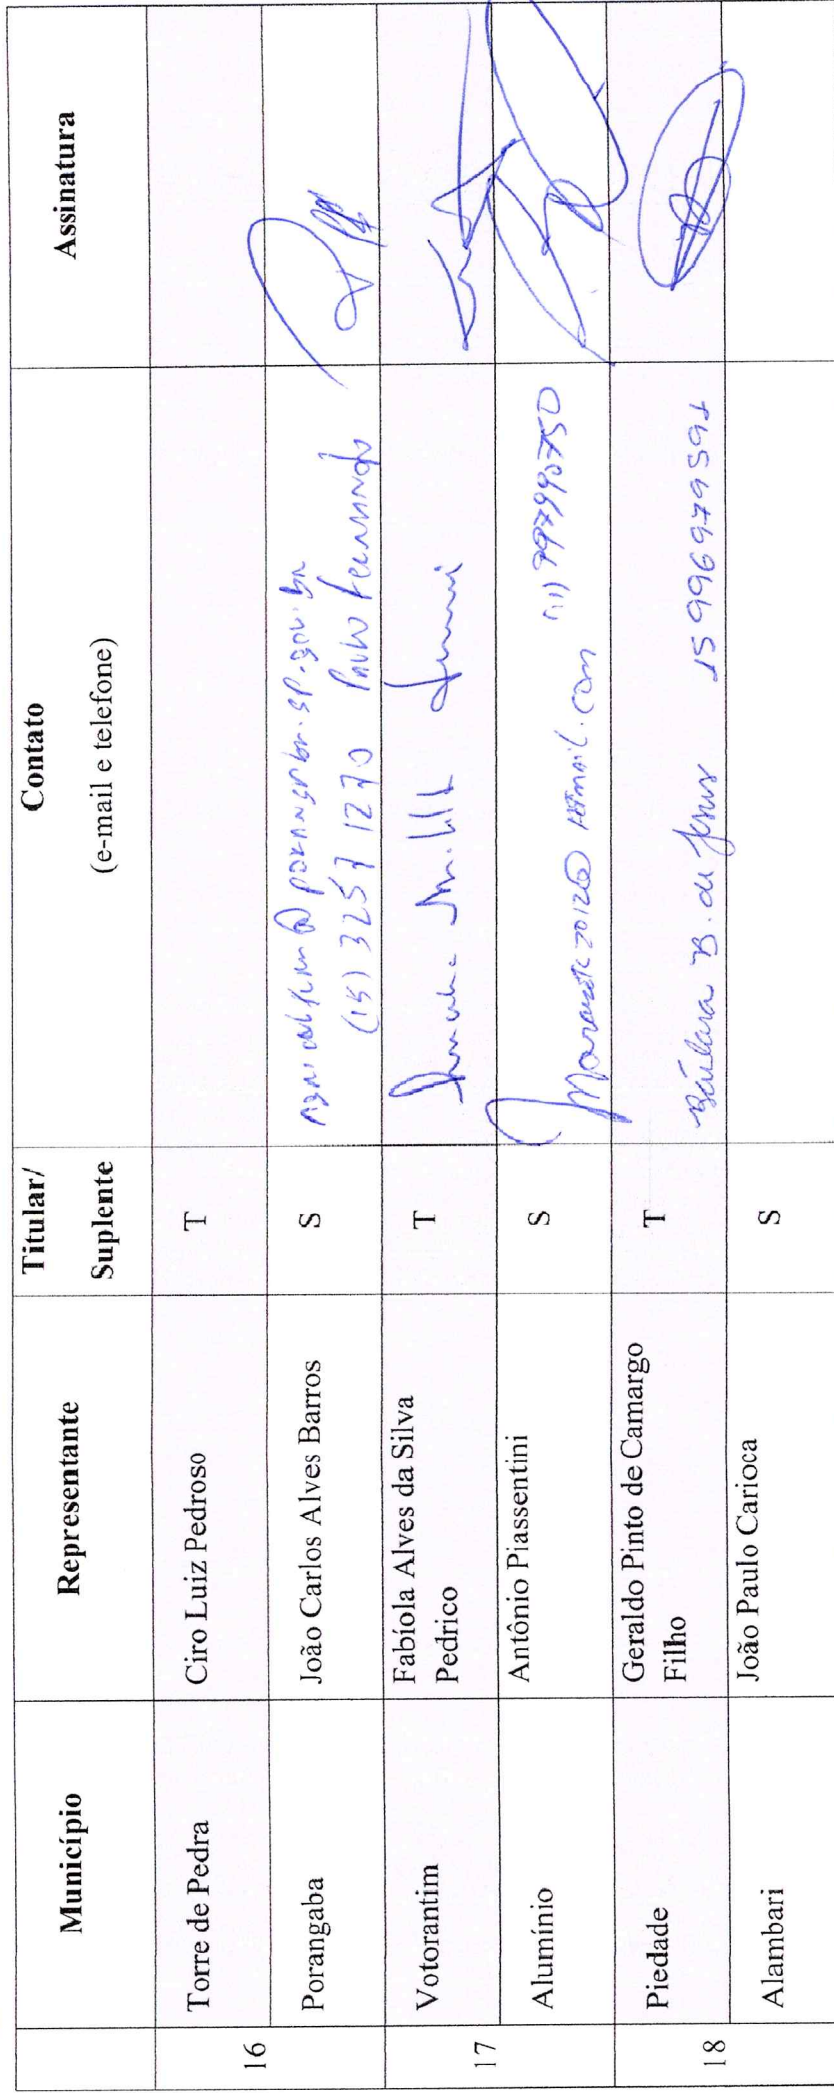 Município Representante Titular/ Suplente Contato (e-mail e telefone) Assinatura
16
Torre de Pedra Ciro Luiz Pedroso T
Porangaba João Carlos Alves Barros S
(15) 3257 1270 Paulo Fernando
17
Votorantim Fabíola Alves da Silva Pedrico T
Alumínio Antônio Piassentini S
18
Piedade Geraldo Pinto de Camargo Filho T B. de Jesus 15 996979591
Alambari João Paulo Carioca S